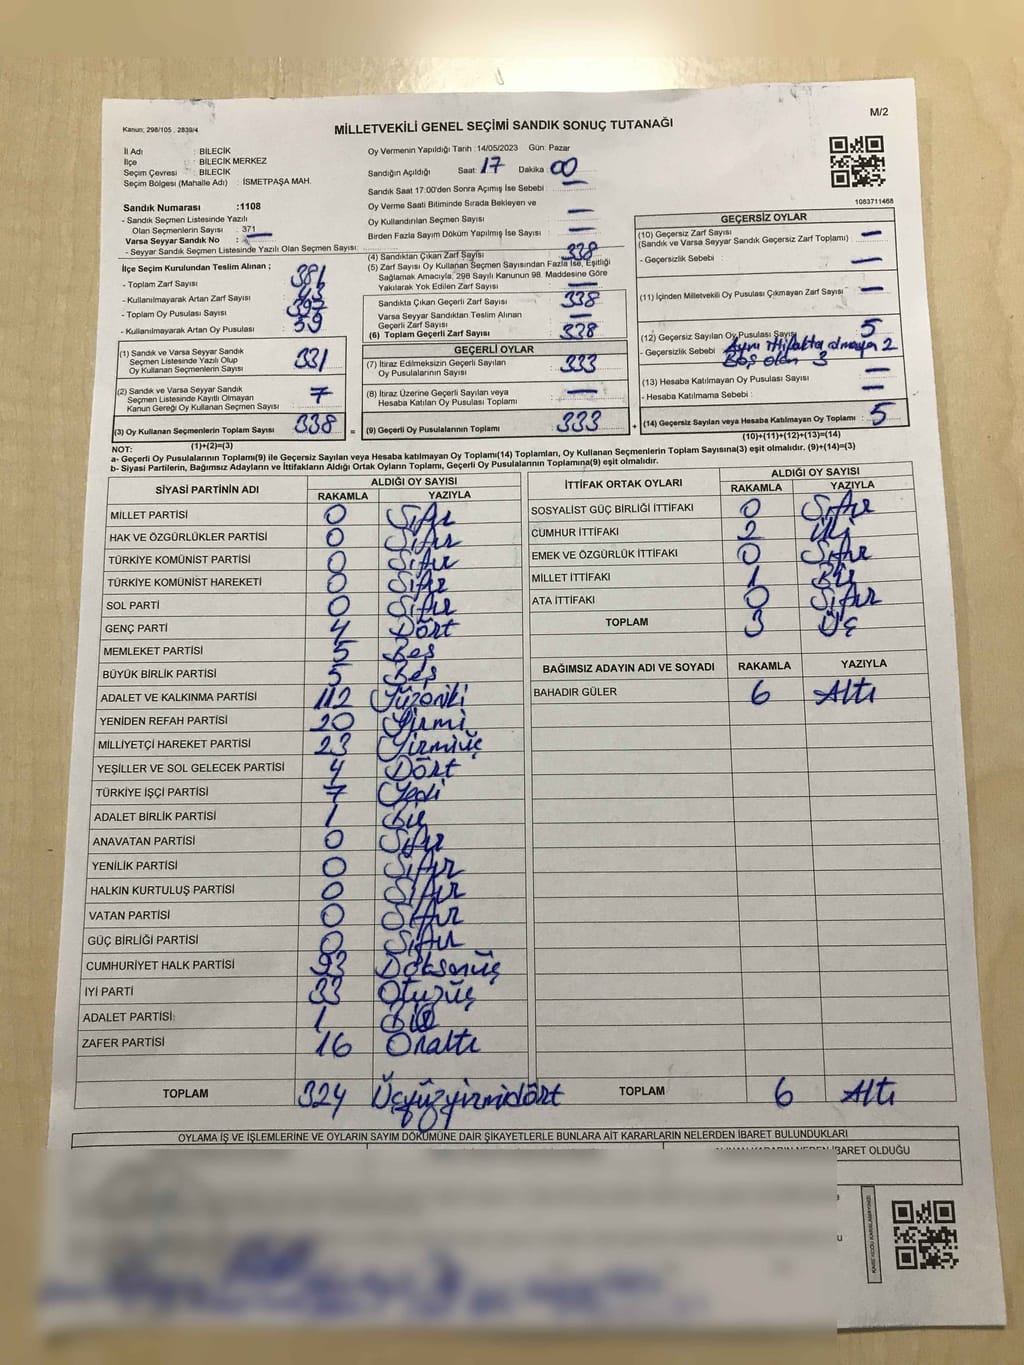 M/2
Kanun; 298/105 , 2839/4
MİLLETVEKİLİ GENEL SEÇİMİ SANDIK SONUÇ TUTANAĞI
İl Adı : BİLECİK
İlçe : BİLECİK MERKEZ
Seçim Çevresi : BİLECİK
Seçim Bölgesi (Mahalle Adı) : İSMETPAŞA MAH.
Sandık Numarası :1108
- Sandık Seçmen Listesinde Yazılı
Olan Seçmenlerin Sayısı : 371
Varsa Seyyar Sandık No : —
- Seyyar Sandık Seçmen Listesinde Yazılı Olan Seçmen Sayısı:
İlçe Seçim Kurulundan Teslim Alınan ;
- Toplam Zarf Sayısı : 381
- Kullanılmayarak Artan Zarf Sayısı : 43
- Toplam Oy Pusulası Sayısı : 397
- Kullanılmayarak Artan Oy Pusulası : 59
(1) Sandık ve Varsa Seyyar Sandık
Seçmen Listesinde Yazılı Olup
Oy Kullanan Seçmenlerin Sayısı : 331
(2) Sandık ve Varsa Seyyar Sandık
Seçmen Listesinde Kayıtlı Olmayan
Kanun Gereği Oy Kullanan Seçmen Sayısı : 7
(3) Oy Kullanan Seçmenlerin Toplam Sayısı : 338 =
(1)+(2)=(3)
Oy Vermenin Yapıldığı Tarih :14/05/2023 Gün: Pazar
Sandığın Açıldığı Saat: 17 Dakika : 00
Sandık Saat 17:00'den Sonra Açımış İse Sebebi : —
Oy Verme Saati Bitiminde Sırada Bekleyen ve
Oy Kullandırılan Seçmen Sayısı : —
Birden Fazla Sayım Döküm Yapılmış İse Sayısı : —
(4) Sandıktan Çıkan Zarf Sayısı : 338
(5) Zarf Sayısı Oy Kullanan Seçmen Sayısından Fazla İse, Eşitliği
Sağlamak Amacıyla, 298 Sayılı Kanunun 98. Maddesine Göre
Yakılarak Yok Edilen Zarf Sayısı : —
Sandıkta Çıkan Geçerli Zarf Sayısı : 338
Varsa Seyyar Sandıktan Teslim Alınan
Geçerli Zarf Sayısı : —
(6) Toplam Geçerli Zarf Sayısı : 338
GEÇERLİ OYLAR
(7) İtiraz Edilmeksizin Geçerli Sayılan
Oy Pusulalarının Sayısı : 333
(8) İtiraz Üzerine Geçerli Sayılan veya
Hesaba Katılan Oy Pusulası Toplamı : —
(9) Geçerli Oy Pusulalarının Toplamı : 333 +
1083711468
GEÇERSİZ OYLAR
(10) Geçersiz Zarf Sayısı : —
(Sandık ve Varsa Seyyar Sandık Geçersiz Zarf Toplamı)
- Geçersizlik Sebebi : —
(11) İçinden Milletvekili Oy Pusulası Çıkmayan Zarf Sayısı : —
(12) Geçersiz Sayılan Oy Pusulası Sayısı : 5
- Geçersizlik Sebebi : Aynı ittifakta olmayan 2
Boş olan 3
(13) Hesaba Katılmayan Oy Pusulası Sayısı : —
- Hesaba Katılmama Sebebi : —
(14) Geçersiz Sayılan veya Hesaba Katılmayan Oy Toplamı : 5
(10)+(11)+(12)+(13)=(14)
NOT:
a- Geçerli Oy Pusulalarının Toplamı(9) ile Geçersiz Sayılan veya Hesaba Katılmayan Oy Toplamı(14) Toplamları, Oy Kullanan Seçmenlerin Toplam Sayısına(3) eşit olmalıdır. (9)+(14)=(3)
b- Siyasi Partilerin, Bağımsız Adayların ve İttifakların Aldığı Ortak Oyların Toplamı, Geçerli Oy Pusulalarının Toplamına(9) eşit olmalıdır.
SİYASİ PARTİNİN ADI ALDIĞI OY SAYISI
RAKAMLA YAZIYLA
MİLLET PARTİSİ 0 Sıfır
HAK VE ÖZGÜRLÜKLER PARTİSİ 0 Sıfır
TÜRKİYE KOMÜNİST PARTİSİ 0 Sıfır
TÜRKİYE KOMÜNİST HAREKETİ 0 Sıfır
SOL PARTİ 0 Sıfır
GENÇ PARTİ 4 Dört
MEMLEKET PARTİSİ 5 Beş
BÜYÜK BİRLİK PARTİSİ 5 Beş
ADALET VE KALKINMA PARTİSİ 112 Yüzoniki
YENİDEN REFAH PARTİSİ 20 Yirmi
MİLLİYETÇİ HAREKET PARTİSİ 23 Yirmiüç
YEŞİLLER VE SOL GELECEK PARTİSİ 4 Dört
TÜRKİYE İŞÇİ PARTİSİ 7 Yedi
ADALET BİRLİK PARTİSİ 1 Bir
ANAVATAN PARTİSİ 0 Sıfır
YENİLİK PARTİSİ 0 Sıfır
HALKIN KURTULUŞ PARTİSİ 0 Sıfır
VATAN PARTİSİ 0 Sıfır
GÜÇ BİRLİĞİ PARTİSİ 0 Sıfır
CUMHURİYET HALK PARTİSİ 93 Doksanüç
İYİ PARTİ 33 Otuzüç
ADALET PARTİSİ 1 Bir
ZAFER PARTİSİ 16 Onaltı
TOPLAM 324 Üçyüzyirmidört
İTTİFAK ORTAK OYLARI ALDIĞI OY SAYISI
RAKAMLA YAZIYLA
SOSYALİST GÜÇ BİRLİĞİ İTTİFAKI 0 Sıfır
CUMHUR İTTİFAKI 2 İki
EMEK VE ÖZGÜRLÜK İTTİFAKI 0 Sıfır
MİLLET İTTİFAKI 1 Bir
ATA İTTİFAKI 0 Sıfır
TOPLAM 3 Üç
BAĞIMSIZ ADAYIN ADI VE SOYADI RAKAMLA YAZIYLA
BAHADIR GÜLER 6 Altı
TOPLAM 6 Altı
OYLAMA İŞ VE İŞLEMLERİNE VE OYLARIN SAYIM DÖKÜMÜNE DAİR ŞİKAYETLERLE BUNLARA AİT KARARLARIN NELERDEN İBARET BULUNDUKLARI
İBARET OLDUĞU